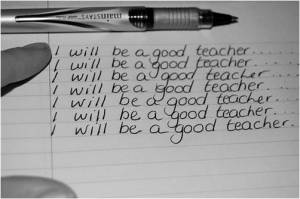 I will be a good teacher.....
I will be a good teacher....
I will be a good teacher....
I will be a good teacher....
I will be a good teacher...
I will be a good teacher...
I will be a good teacher...